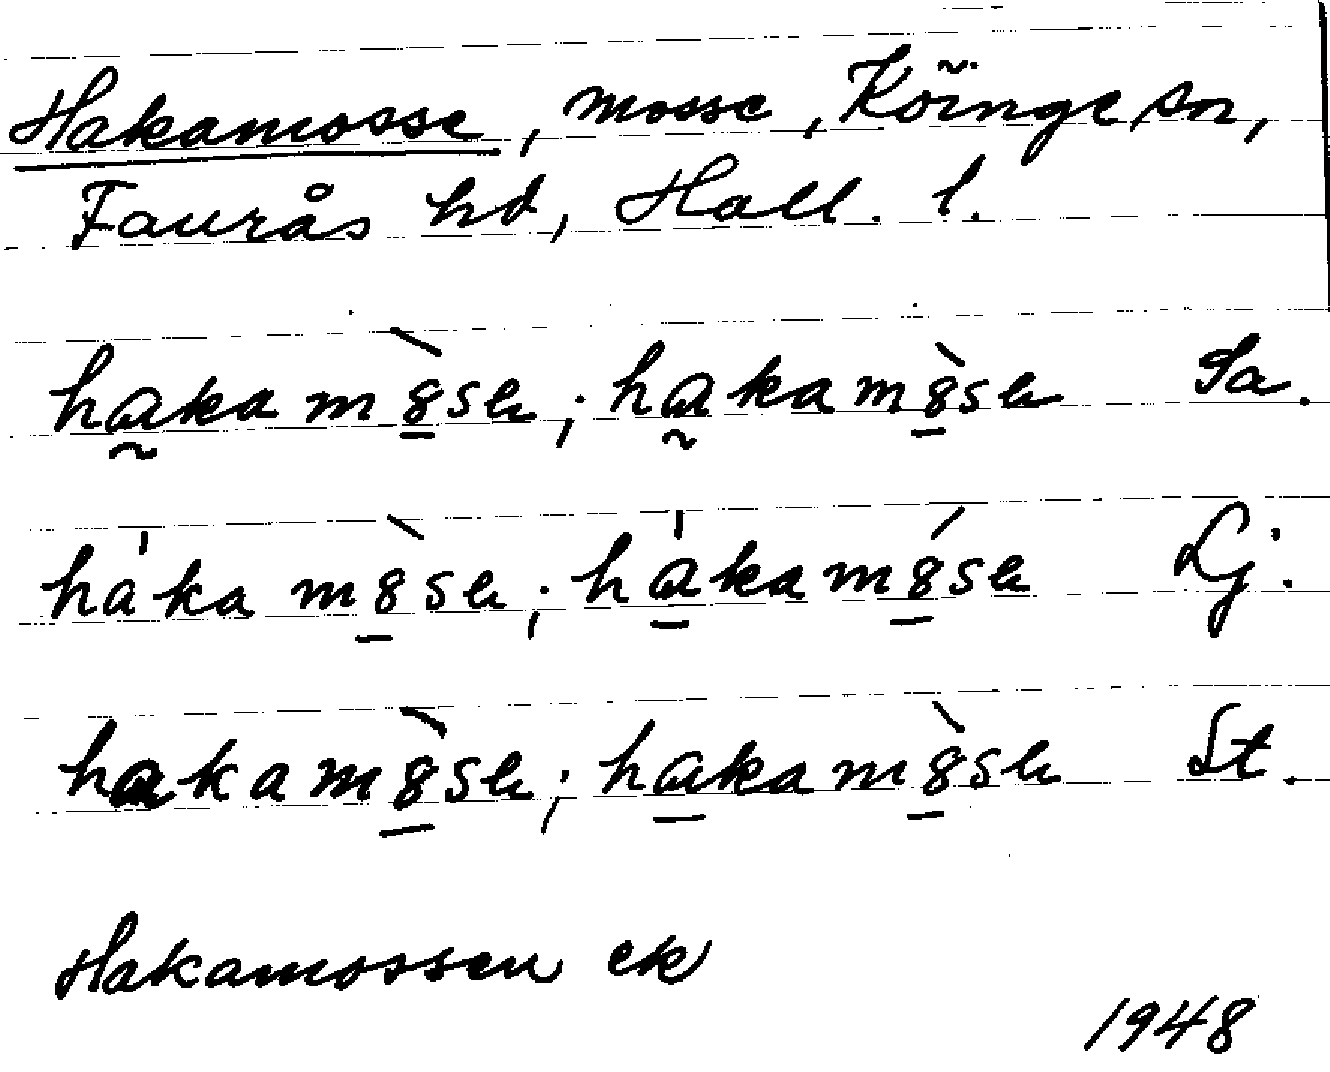 Hakamosse, mosse, Köinge sn,
Faurås hd, Hall. l.
ha̰kam8̲̀sn; ha̰kam8̲̀sn Sa.
ha̍kam8̲̀sn; ha̲̍kam8̲́sn Lj.
hakam8̲̀sn; ha̲kam8̲̀sn St.
Hakamossen ek
1948